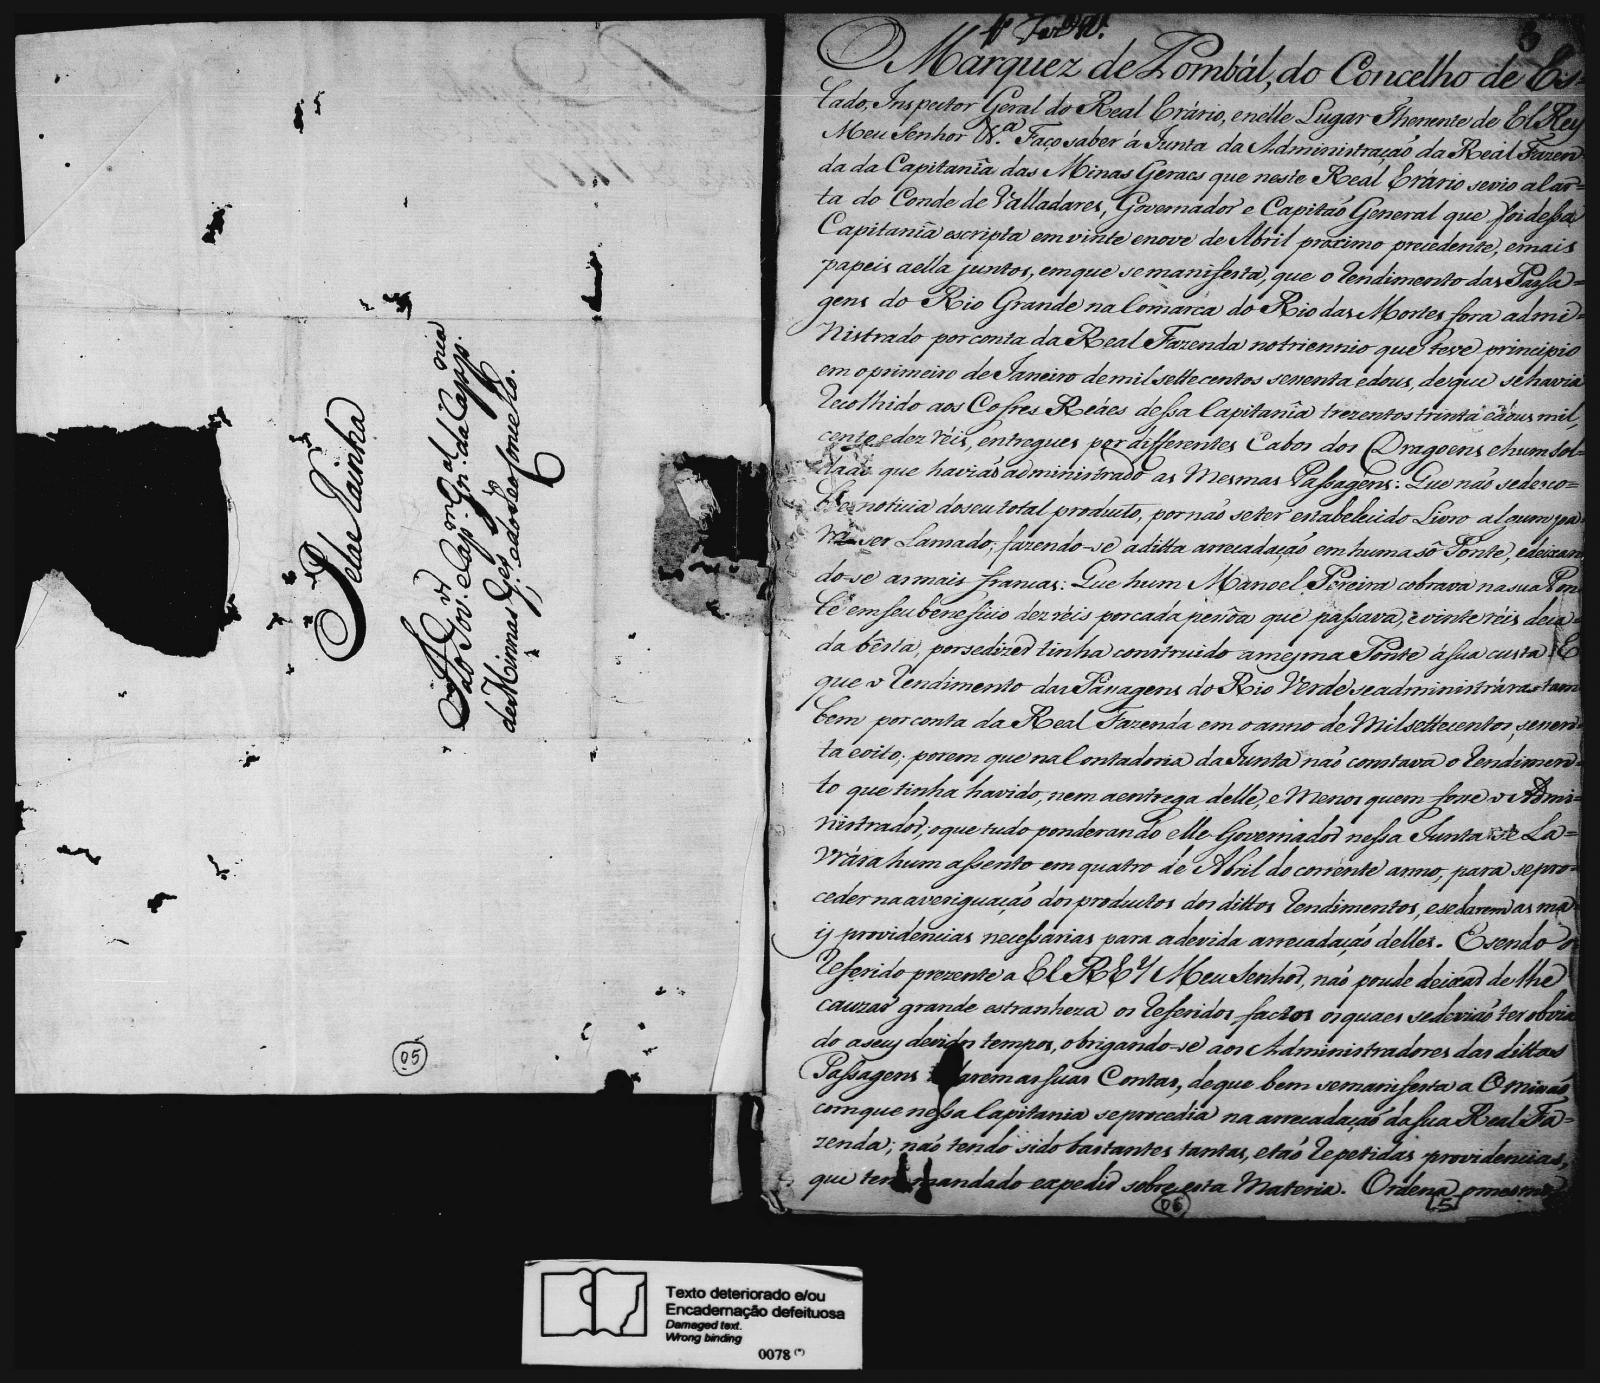 Pela Rainha
Ao Gov.or e Cap.m Gn.al da Capp.nia
das Minas Geraes
05
3
O Marquez de Pombál, do Concelho de Es=
tado, Inspector Geral do Real Erário, e nelle Lugar Thenente de El Rey
Meu Senhor &.ª Faço saber á Junta da Administraçaõ da Real Fazen=
da da Capitanîa das Minas Geraes que neste Real Erário se vio a Car=
ta do Conde de Valladares, Governador e Capitaõ General que foi dessa
Capitanîa escripta em vinte e nove de Abril proximo precedente, e mais
papeis a ella juntos, em que se manifesta, que o rendimento das Passa=
gens do Rio Grande na Comarca do Rio das Mortes fora admi=
nistrado por conta da Real Fazenda no triennio que teve principio
em o primeiro de Janeiro de mil settecentos sessenta e dous, de que se havia
recolhido aos Cofres Reáes dessa Capitanîa trezentos trinta e dous mil,
cento e dez réis, entregues por differentes Cabos dos Dragoens e hum sol=
dado que haviaõ administrado as mesmas Passagens: Que naõ se desco=
bre noticia do seu total producto, por naõ se ter estabelecido Livro algum pa=
ra ser Lansado, fazendo-se a ditta arrecadaçaõ em huma só Ponte, e deixan=
do-se as mais francas: Que hum Manoel Pereira cobrava na sua Pon=
te em seu beneficio dez réis por cada pessôa que passava, e vinte réis de ca=
da bêsta, por se dizer tinha construido a mesma Ponte á sua custa: E
que o rendimento das Passagens do Rio Verde se administráraõ tam=
bem por conta da Real Fazenda em o anno de mil settecentos, sessen=
ta e oito; porem que na Contadoria da Junta naõ constava o rendimen=
to que tinha havido, nem a entrega delle, e menos quem fosse o Admi=
nistrador; o que tudo ponderando elle Governador nessa Junta se La=
vrára hum assento em quatro de Abril do corrente anno, para se pro=
ceder na averiguaçaõ dos productos dos dittos rendimentos, e se darem as ma=
is providencias necessarias para a devida arrecadaçaõ delles. E sendo o
referido prezente a El REY Meu Senhor, naõ poude deixar de lhe
cauzar grande estranheza os referidos factos os quaes se deviaõ ter obvia=
do a seus devidos tempos, obrigando-se aos Administradores das dittas
Passagens darem as suas Contas, de que bem se manifesta a Omissaõ
com que nessa Capitania se procedia na arrecadaçaõ da sua Real Fa=
zenda; naõ tendo sido bastantes tantas, e taõ repetidas providencias,
que tem mandado expedir sobre esta Materia. Ordena o mesmo
06
5
Texto deteriorado e/ou
Encadernação defeituosa
Damaged text.
Wrong binding
0078 (*)